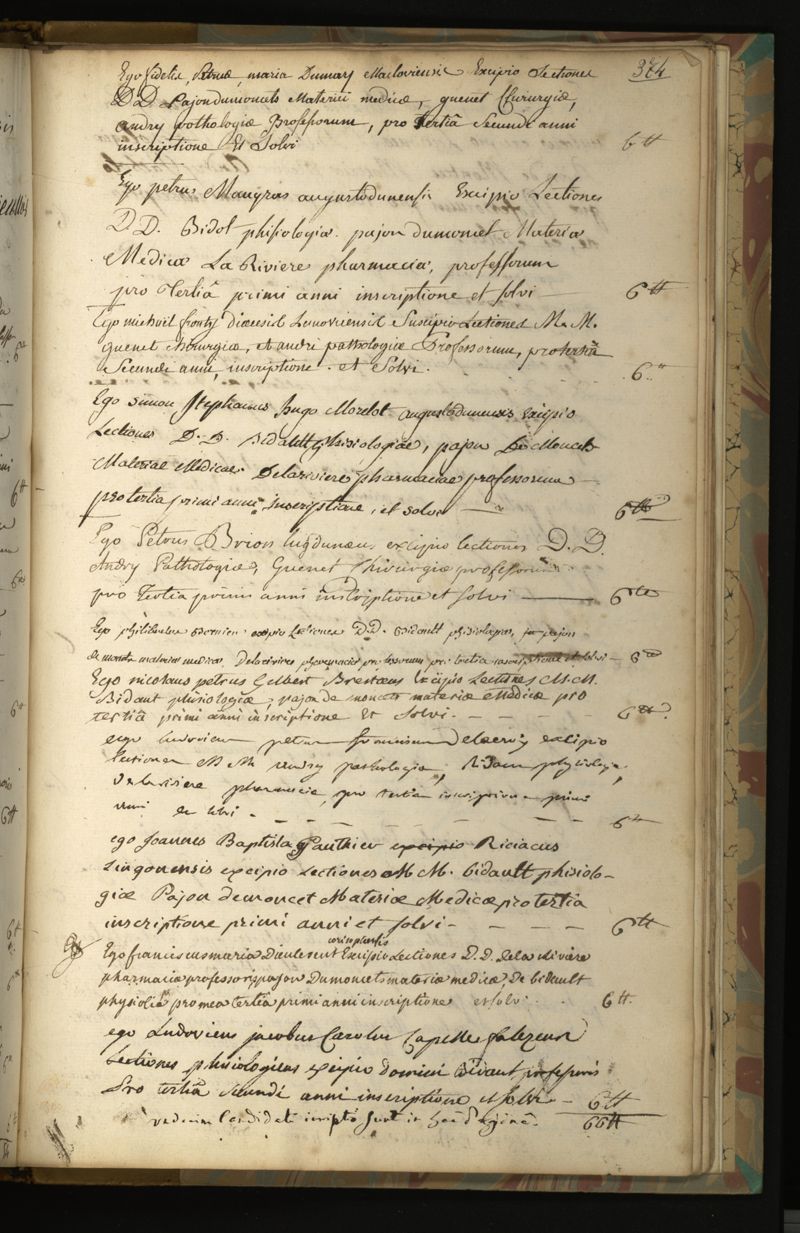 374
Ego fidelis, Petrus, maria Dumay Macloviensis Excipio Lectiones
D D Pajon dumoncets Materiei medicæ, guenet Chirurgiæ,
andry pathologiæ Professorum, pro tertiâ Secundi anni
inscriptione Et Solvi 6 tt
Ego petrus Maugras augustodunensis Excipio Lectiones
D D. Bidot phisiologiæ. pajon dumoncet Materia
Medicæ La Riviere pharmaciæ, professorum
pro tertiâ primi anni inscriptione et solvi 6 tt
Ego michael dioecesis Suscipio Lectiones M. M.
guenet chirurgiæ, et andri pathologiæ Professorum, pro tertiâ
Secundi anni, inscriptione. et Solvi. 6 tt
Ego Simon Stephanus hugo Morelot augustodunensis Excipio
Lectiones D. D. Bidault phisiologiae, pajon De Moncets
Materiae Medicae. Delariviere pharmaciae professorum
pro tertia primi anni inscriptione, et solvi 6 tt
Ego Petrus Brion lugdunæus, excipio lectiones D. D.
Andry Pathologiæ, Guenet Chirurgiæ professorum
pro tertia primi anni inscriptione et solvi 6 tt
Ego philibertus excipio Lectiones D. D. Bidault phisiologiae, pajon
de moncets materiae medicae, Delariviere pharmaciae professorum pro tertia inscriptione et solvi 6 tt
Ego nicolaus petrus Gilbert Brestæus Excipio Lectiones M. M.
Bidaut phisiologiæ, pajon de moncets materiæ Medicæ pro
tertiâ primi anni inscriptione Et Solvi. 6 tt
ego ludovicus petrus franciscus Delacroix excipio
Lectiones M M andry pathologiæ, Bidaut physiologiæ,
Delariviere pharmaciæ, pro tertia inscriptione primi
anni et solvi. 6 tt
ego Joannes Baptista Gauthier excipio Riciacus
Lingonensis excipio Lectiones M M. bidault phisiolo-
giæ Pajon demoncet Materiæ Medicæ pro tertia
inscriptione primi anni et solvi 6 tt
Ego franciscus maria Dieulesent Excipio Lectiones D. D. Dela Rivière
pharmaciæ professoris, pajon Dumoncets materiæ medicæ, De bidault
physioliæ pro mea tertiâ primi anni inscriptione et solvi. 6 tt.
ego Ludovicus jacobus Carolus Capelle falezeus
Lectiones phisiologicas excipio domini Bidaut professoris
Pro tertiâ Secundi anni inscriptione et solvi 6 tt
undecim Candidati inscripti sunt in hac paginâ. 66 tt